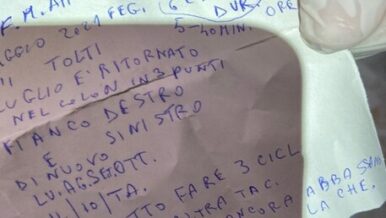 F. M. AM
AGGIO 2021 FEG. (6 C
DUR.
5-40 MIN. ORE
TOLTI
LUGLIO E' RITORNATO
NEL COLON IN 3 PUNTI
FIANCO DESTRO
E SINISTRO
DI NUOVO
LU. AG. SETT.
/10/ TA.
TTO FARE 3 CICL
LTRA TAC.
ANCORA
ABBASSAN
LA CHE.